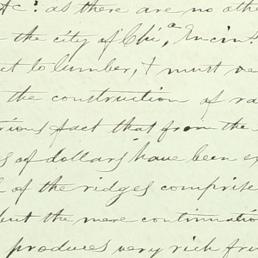 &c: as there are no othe
the city of Chi,a Cincin
ct to lumber, & must
the construction of ra
rious fact that from the
s of dollars have been e
of the ridges comprise
but the mere continuatio
produces very rich fr